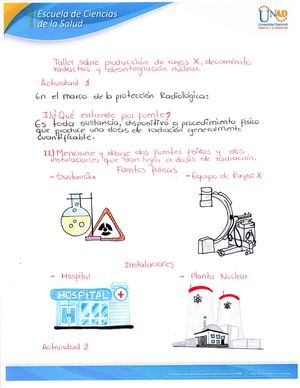 Escuela de Ciencias
de la Salud
UNAD
Taller sobre producción de rayos X, decaimiento
radiactivo y desintegración nuclear.
· Actividad 1
En el marco de la protección Radiológica:
I) ¿Qué entiende por fuente?
Es toda sustancia, dispositivo o procedimiento físico
que produce una dosis de radiación generalmente
cuantificable.
II) Mencione y dibuje dos fuentes físicas y dos
instalaciones que dan lugar a dosis de radiación.
Fuentes físicas
- Sustancia
- Equipo de Rayos X
Instalaciones
- Hospital
- Planta Nuclear
HOSPITAL
Actividad 2